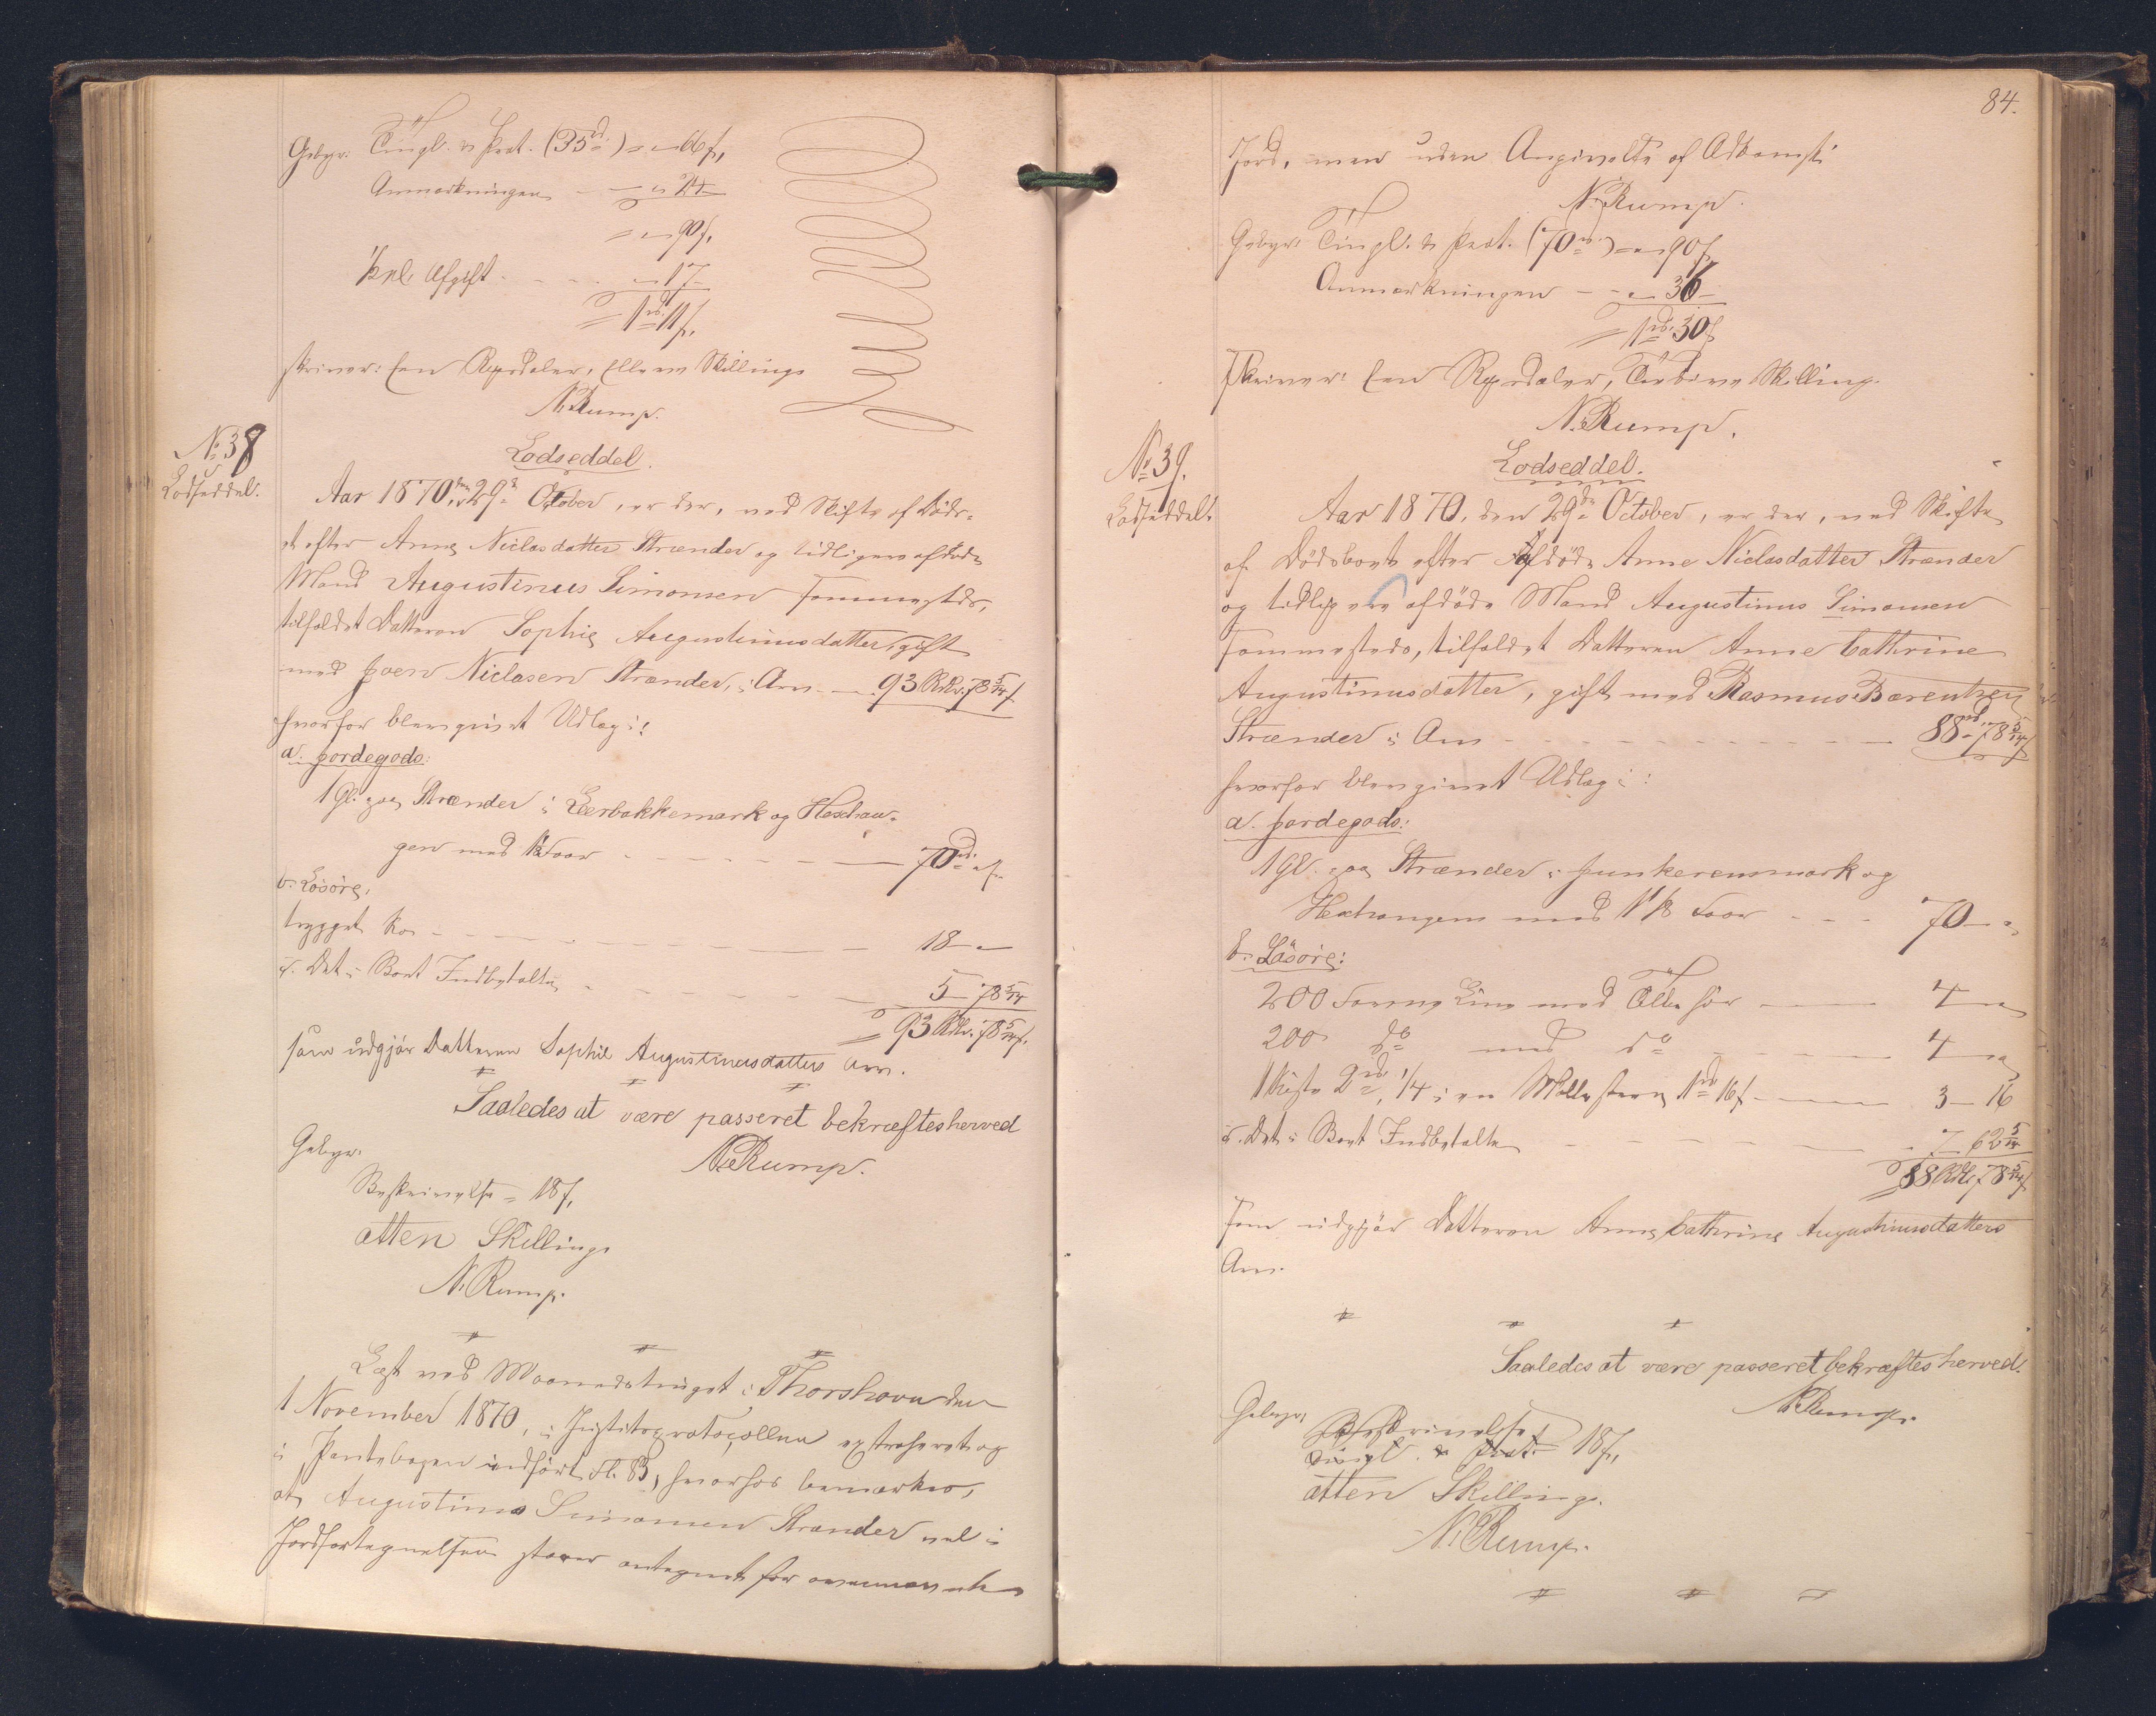 Gebyr: Tingl. & Prot. (35rd) = "66ß,
Anmærkningen - " 24 -
= " 90ß,
Pnl. Afgift - - - " 17 -
= 1rd. 11ß,
skriver: Een Rigsdaler, Elleve Skilling.
N. Rump.
No 38
Lodseddel.
Lodseddel.
Aar 1870, den 29de October, er der, ved Skifte af Dödbo-
et efter Anne Niclasdatter Strænder og tidligere afdöde
Mand Augustinus Simonsen sammesteds,
tilfaldet Datteren Sophie Augustinusdatter, gift
med Joen Niclasen Strænder, i Arv - 93 Rdlr. 78 5/14 ß
hvorfor blev givet Udlæg i:
a. Jordegods:
1 Gl. paa Strænder i Lerbakkemark og Haschau-
gen med Faar - - - 70rd. " ß.
b. Lösöre,
1 bygget Ko - - - 18 - "
c. Det i Boet Indbetalte - - - 5 - 78 5/14
= 93 Rdlr. 78 5/14 ß.
som udgjör Datteren Sophie Augustinusdatters Arv.
Saaledes at være passeret bekræftes herved
N. Rump.
Gebyr:
Beskrivelse = 18ß,
atten Skilling.
N. Rump.
Læst ved Maanedstinget i Thorshavn den
1 November 1870, i Justitsprotocollen extraheret og
i Pantebogen indfört Fl. 83, hvorhos bemærkes,
at Augustinus Simonsen Strænder vel i
Jordfortegnelsen staaer antegnet for ovennævnte
84.
Jord, men uden Angivelse af Adkomst.
N. Rump.
Gebyr: Tingl. & Prot. (70rd.) = " 90ß
Anmærkningen - - " 36 -
= 1rd. 30ß
skriver: Een Rigsdaler, Tredive Skilling.
N. Rump.
No 39.
Lodseddel.
Lodseddel.
Aar 1870, den 29de October, er der, ved Skifte
af Dödsboet efter afdöde Anne Niclasdatter Strænder
og tidligere afdöde Mand Augustinus Simonsen
sammesteds, tilfaldet Datteren Anne Cathrine
Augustinusdatter, gift med Rasmus Barentsen
Strænder i Arv - - - 88rd. 78 5/14 ß
hvorfor blev givet Udlæg i:
a. Jordegods:
1 Gl. paa Strænder i Junkerensmark og
med 1 1/8 Faar - - - 70 - "
b. Lösöre:
200 Favne Line med Tilbehör - 4 - "
200 do med do - - - 4 - "
1 Kiste 2rd., 1/4 i en Möllesteen 1rd 16ß - 3 - 16
c. Det i Boet Indbetalte - - - 7 - 62 5/14
= 88 Rdlr. 78 5/14 ß
som udgjör Datteren Anne Cathrine Augustinusdatters
Arv.
Saaledes at være passeret bekræftes herved.
N. Rump.
Gebyr: Beskrivelse
Tingl. & Prot. = 18ß,
atten Skilling.
N. Rump.